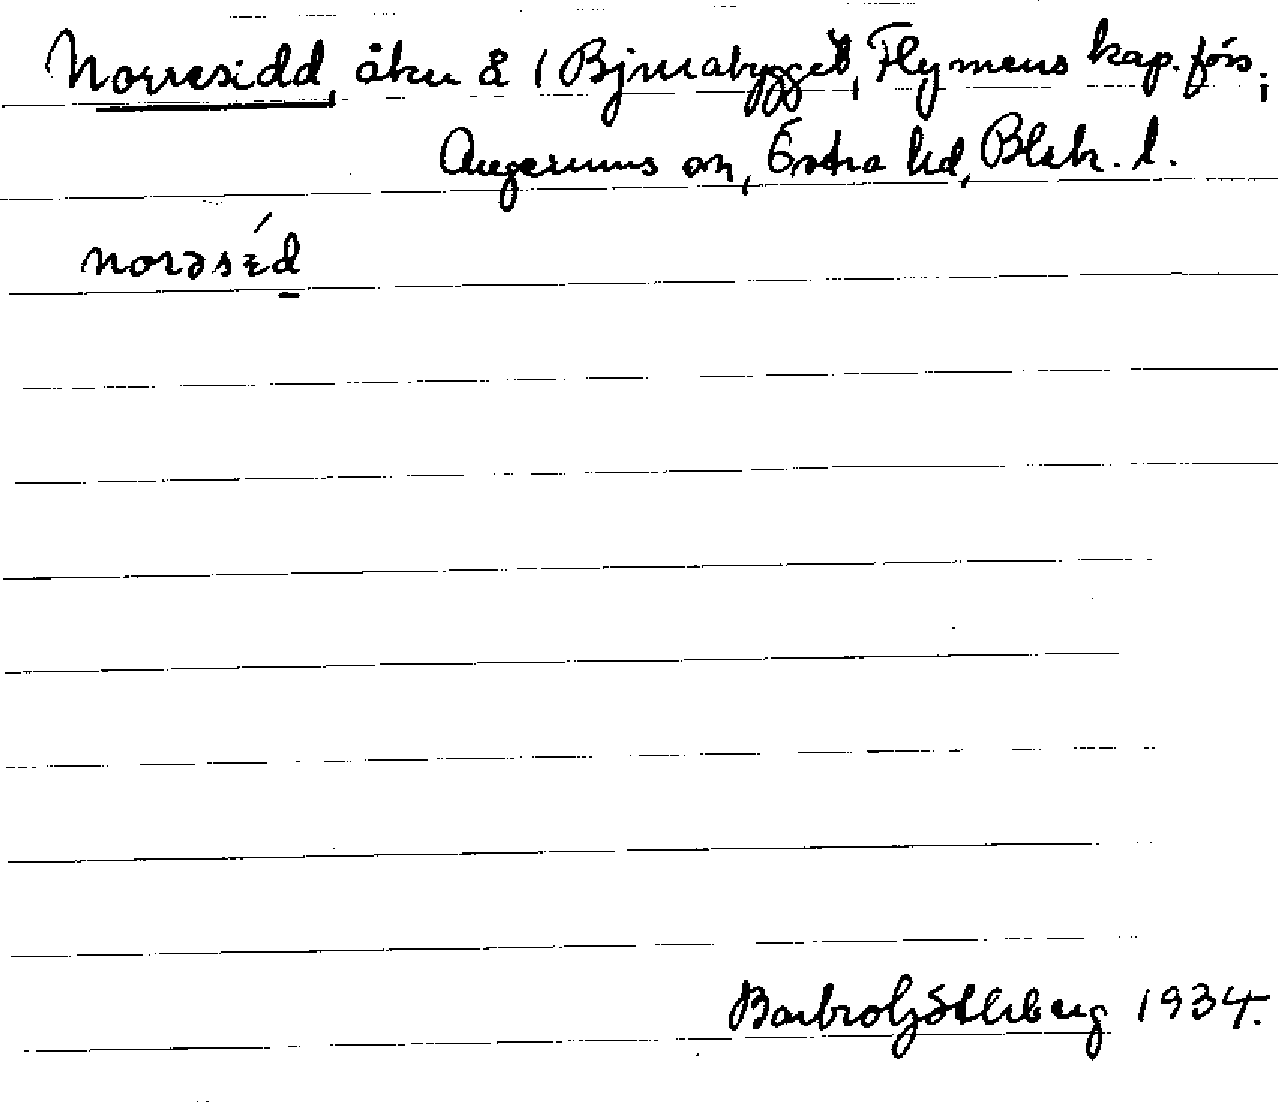 Norresidd, åker å 1 Björstabygget, Flymens kap. förs.;
Augerums sn, Östra hd, Blek. l.
norəsɛ́d
Barbro Göthberg 1934.